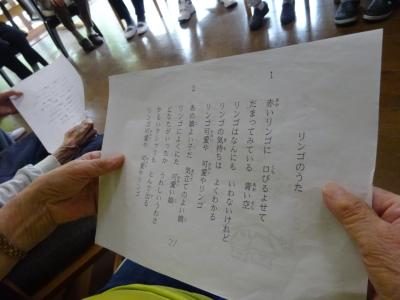 リンゴのうた
1
赤いリンゴに 口びるよせて
だまってみている 青い空
リンゴはなんにも いわないけれど
リンゴの気持ちは よくわかる
リンゴ可愛や 可愛やリンゴ
2
あの娘よい子だ 気立てのよい娘
リンゴによくにた 可愛い娘
どなたがいったか うれしいうわさ
かるいクシャミも とんで出る
リンゴ可愛や 可愛やリンゴ